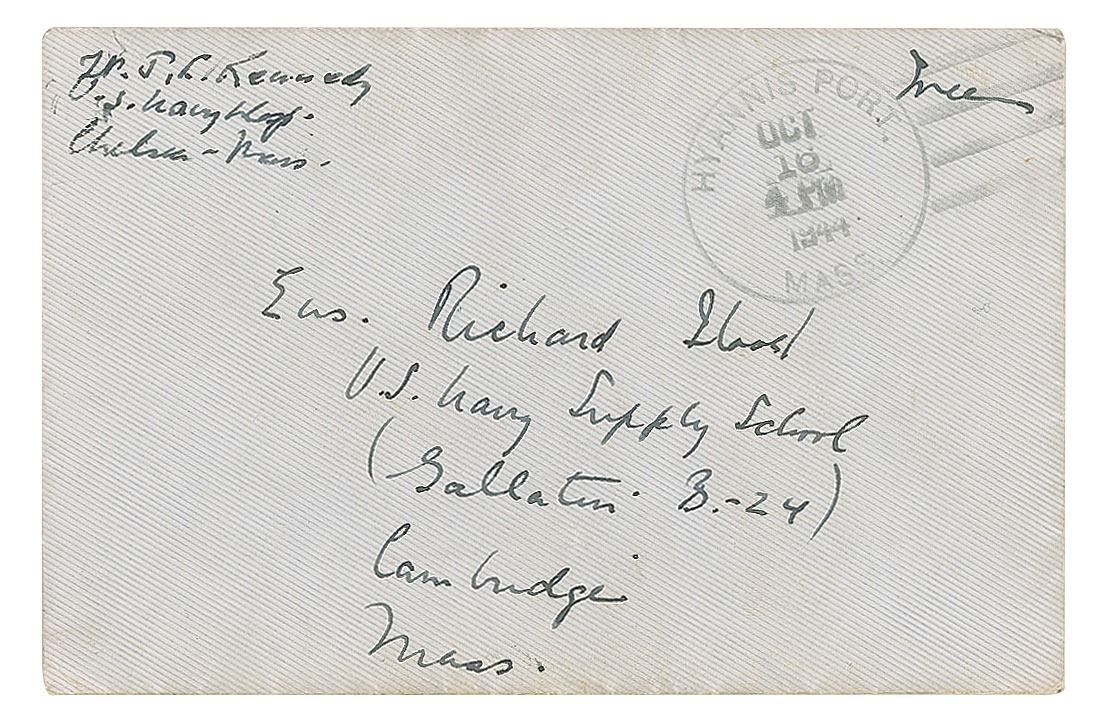 Lt. J. F. Kennedy
U.S. Navy Hosp.
Chelsea - Mass.
Free
HYANNIS PORT
OCT
10
4 PM
1944
MASS.
Ens. Richard Flood
U.S. Navy Supply School
(Gallatin B-24)
Cambridge
Mass.